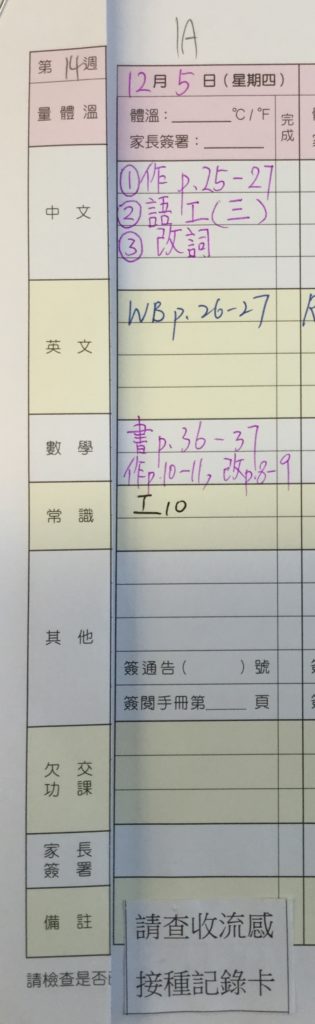 1A
第14週
12月5日(星期四)
量體溫
體溫：______℃/℉
家長簽署：______
完成
中文
①作 p.25-27
②語工(三)
③改詞
英文
WB p.26-27
數學
書p.36-37
作p.10-11, 改p.8-9
常識
工10
其他
簽通告( )號
簽閱手冊第____頁
欠交功課
家長簽署
備註
請查收流感
接種記錄卡
請檢查是否